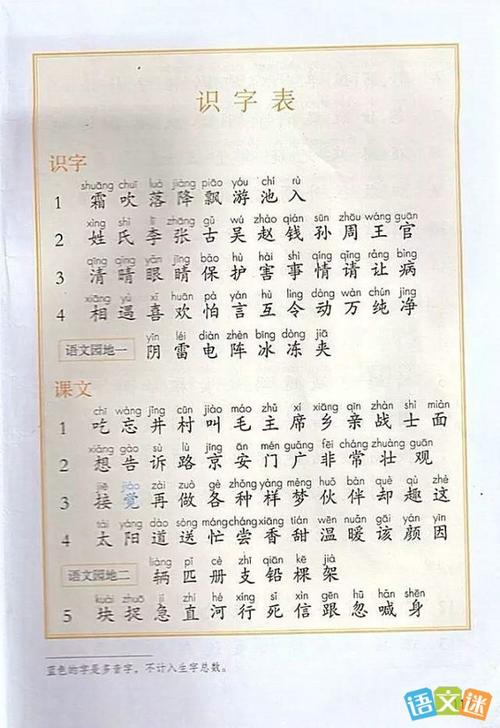 识字表
识字
shuāng chuī luò jiàng piāo yóu chí rù
1 霜 吹 落 降 飘 游 池 入
xìng shì lǐ zhāng gǔ wú zhào qián sūn zhōu wáng guān
2 姓 氏 李 张 古 吴 赵 钱 孙 周 王 官
qīng qíng yǎn jīng bǎo hù hài shì qíng qǐng ràng bìng
3 清 晴 眼 睛 保 护 害 事 情 请 让 病
xiāng yù xǐ huān pà yán hù lìng dòng wàn chún jìng
4 相 遇 喜 欢 怕 言 互 令 动 万 纯 净
yīn léi diàn zhèn bīng dòng jiā
语文园地一 阴 雷 电 阵 冰 冻 夹
课文
chī wàng jǐng cūn jiào máo zhǔ xí xiāng qīn zhàn shì miàn
1 吃 忘 井 村 叫 毛 主 席 乡 亲 战 士 面
xiǎng gào sù lù jīng ān mén guǎng fēi cháng zhuàng guān
2 想 告 诉 路 京 安 门 广 非 常 壮 观
jiē jiào zài zuò gè zhǒng yàng mèng huǒ bàn què qù zhè
3 接 觉 再 做 各 种 样 梦 伙 伴 却 趣 这
tài yáng dào sòng máng cháng xiāng tián wēn nuǎn gāi yán yīn
4 太 阳 道 送 忙 尝 香 甜 温 暖 该 颜 因
liàng pǐ cè zhī qiān kē jià
语文园地二 辆 匹 册 支 铅 棵 架
kuài zhuō jí zhí hé xíng sǐ xìn gēn hū hǎn shēn
5 块 捉 急 直 河 行 死 信 跟 忽 喊 身
蓝色的字是多音字，不计入生字总数。
语文迷